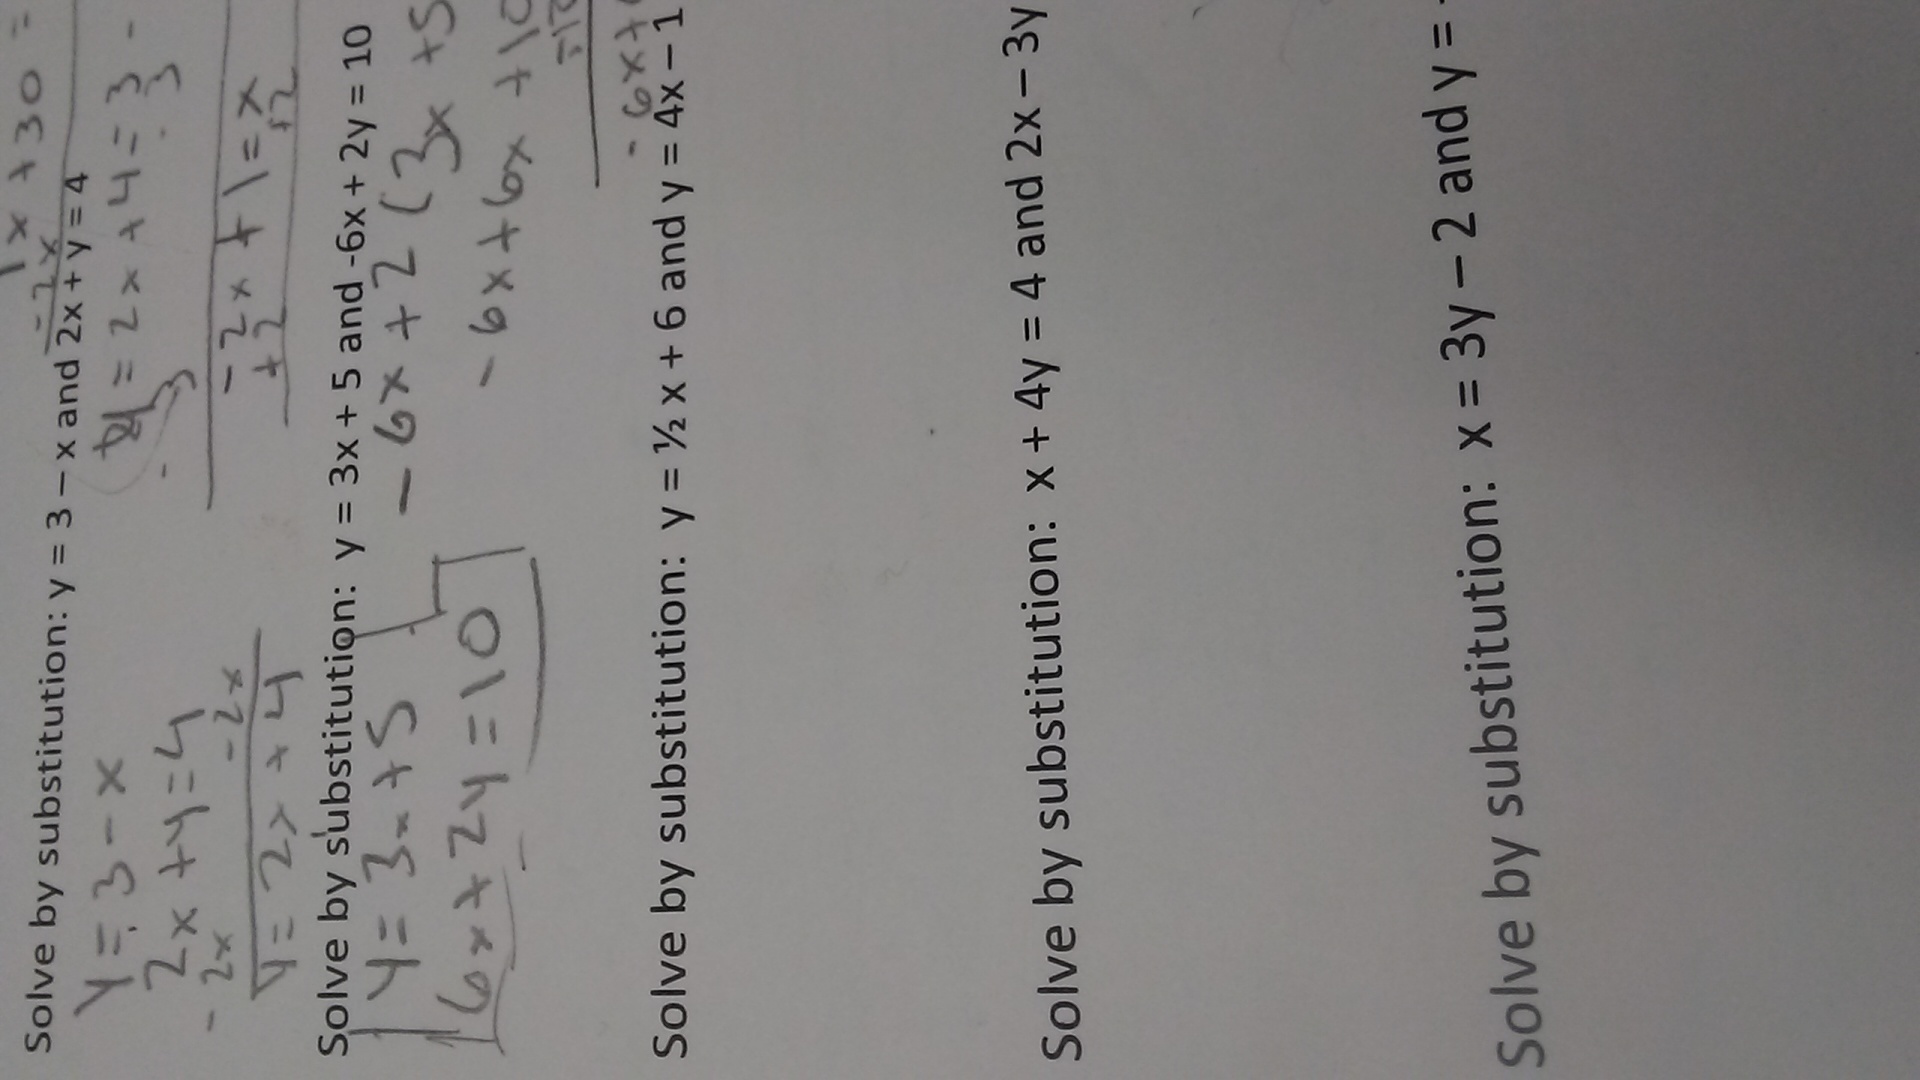 1x + 30 =
-2x
Solve by substitution: y = 3 – x and 2x + y = 4
y = 3 - x
= 2x + 4 = 3 -
2x + y = 4
3
3
- 2x
-2x
-2x + 1 = x
y = 2x + 4
+2
+2
Solve by substitution: y = 3x + 5 and -6x + 2y = 10
y = 3x + 5
-6x + 2(3x + 5
6x + 2y = 10
-6x + 6x + 10
-6x +
Solve by substitution: y = ½ x + 6 and y = 4x – 1
Solve by substitution: x + 4y = 4 and 2x – 3y
Solve by substitution: x = 3y – 2 and y =